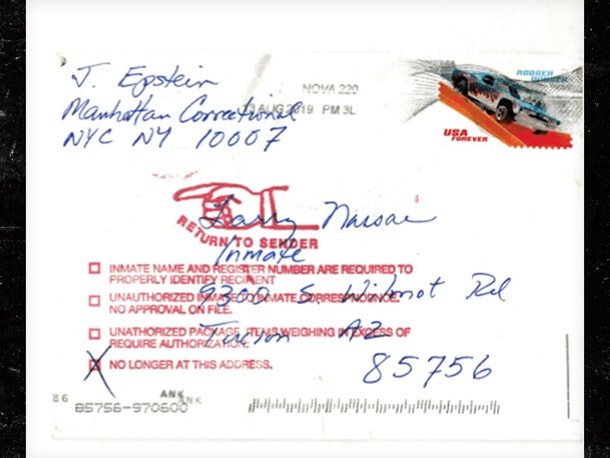 J. Epstein
Manhattan Correctional
NYC NY 10007
NOVA 220
13 AUG 2019 PM 3L
USA
FOREVER
Larry Nassar
RETURN TO SENDER
Inmate
INMATE NAME AND REGISTER NUMBER ARE REQUIRED TO
PROPERLY IDENTIFY RECIPIENT
9300 S. Wilmot Rd
UNAUTHORIZED INMATE TO INMATE CORRESPONDENCE.
NO APPROVAL ON FILE.
Tucson AZ
UNATHORIZED PACKAGE. ITEMS WEIGHING IN EXCESS OF
REQUIRE AUTHORIZATION.
X NO LONGER AT THIS ADDRESS.
85756
86
ANK
ANK
85756-970600